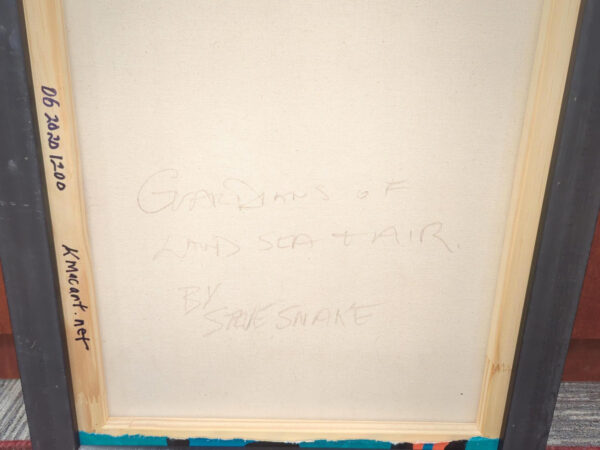 06 2020 1200
Kmacart.net
GUARDIANS OF
LAND SEA + AIR.
BY
SNAKE